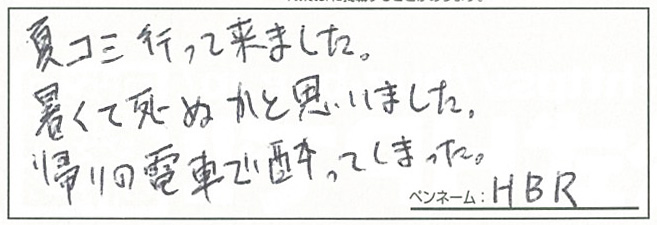 夏コミ行って来ました。
暑くて死ぬかと思いました。
帰りの電車で酔ってしまった。
ペンネーム：HBR